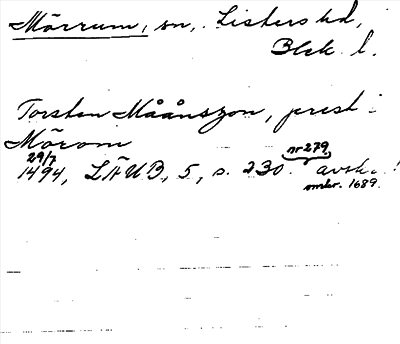 Mörrum, sn, Listers hd,
Blek. l.
Torsten Måånszon, prest i
Mörom
29/7 nr 279,
1494, LÄUB, 5, s. 230. avskr.
omkr. 1689.